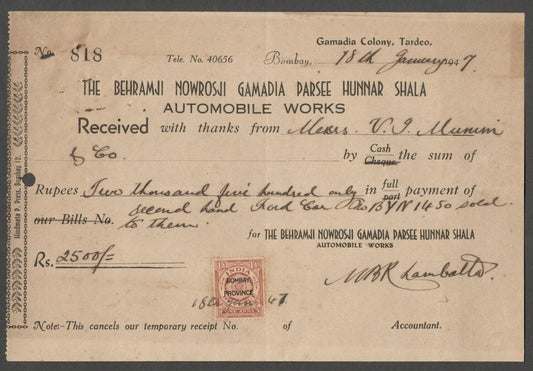 Gamadia Colony, Tardeo,
No. 818 Tele. No. 40656 Bombay, 18th January 1947.
THE BEHRAMJI NOWROSJI GAMADIA PARSEE HUNNAR SHALA
AUTOMOBILE WORKS
Received with thanks from Messrs. V. J. Munim
& Co. by Cash Cheque the sum of
Rupees Two thousand five hundred only in full part payment of
our Bills No. second hand Ford Car No BYN 1450 sold
to them.
for THE BEHRAMJI NOWROSJI GAMADIA PARSEE HUNNAR SHALA
AUTOMOBILE WORKS
Rs. 2500/=
INDIA
BOMBAY
PROVINCE
ONE ANNA
18th Jany 47
Note:-This cancels our temporary receipt No. of Accountant.
P. Press, Bombay 12.